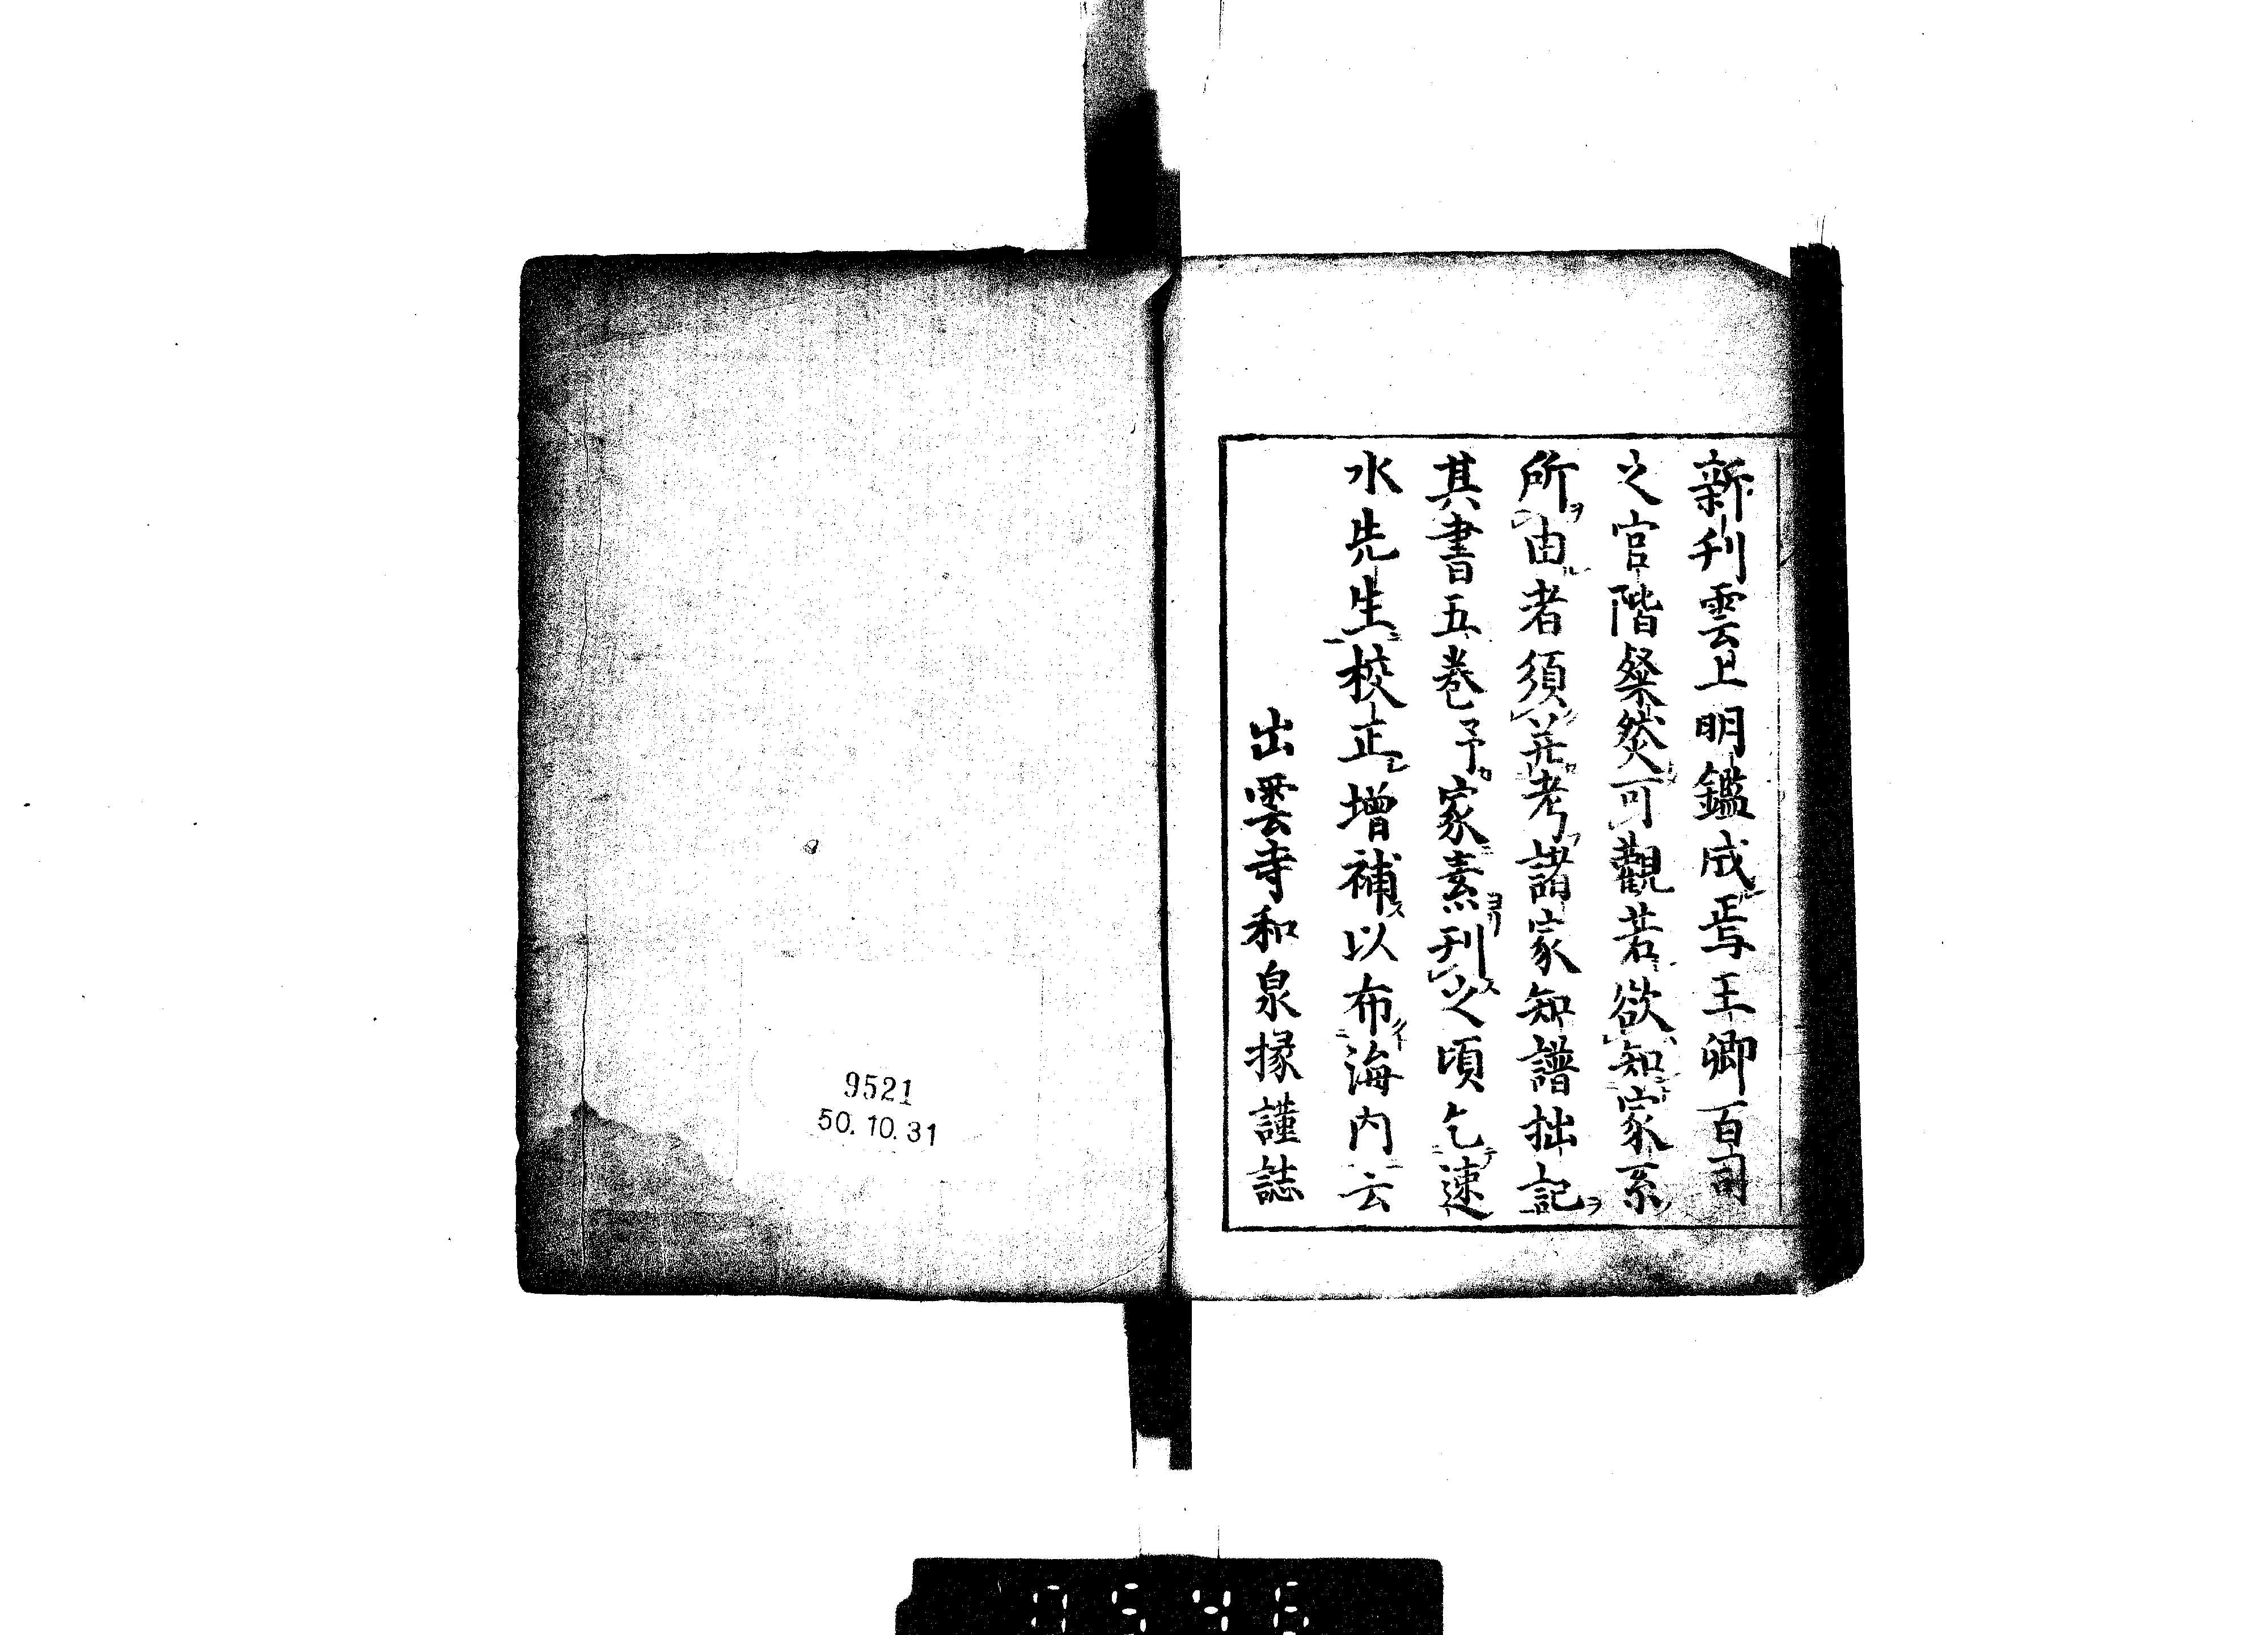 新刊雲上明鑑成焉王卿百司
之官階粲然可觀若欲知家系
所由者須并考諸家知譜拙記
其書五巻予家素刊之頃乞速
水先生校正増補以布海内云
出雲寺和泉掾謹誌
9521
50.10.31